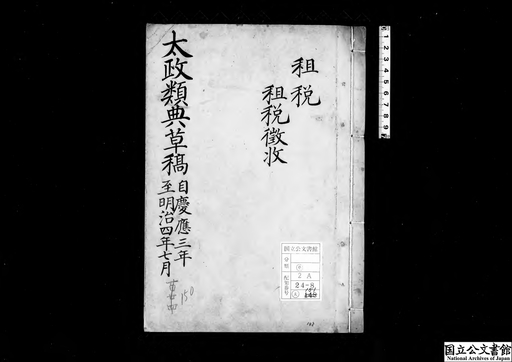 租税
租税徴收
太政類典草稿
自慶應三年
至明治四年七月
150
国立公文書館
分類
2A
配架番号
24-8
国立公文書館
National Archives of Japan
1 2 3 4 5 6 7 8 9